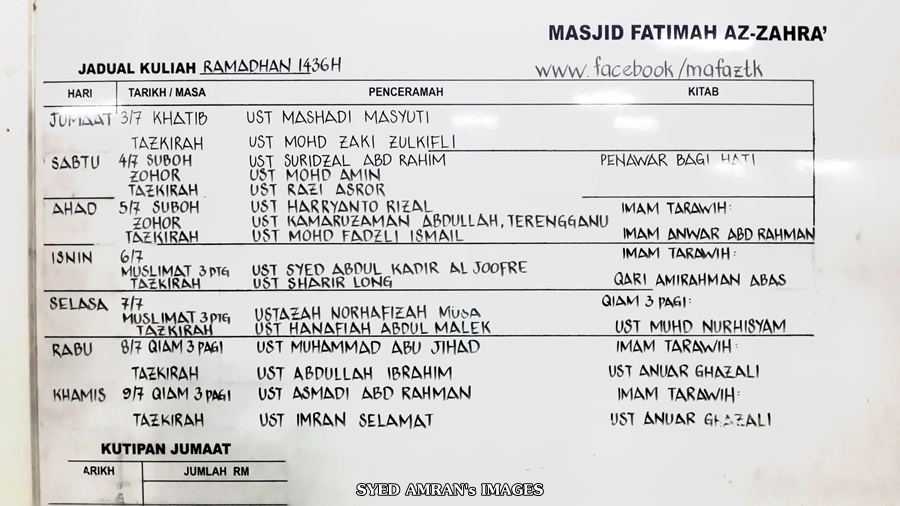 MASJID FATIMAH AZ-ZAHRA'
JADUAL KULIAH RAMADHAN 1436H www.facebook/mafaztk
HARI TARIKH / MASA PENCERAMAH KITAB
JUMAAT 3/7 KHATIB UST MASHADI MASYUTI
TAZKIRAH UST MOHD ZAKI ZULKIFLI
SABTU 4/7 SUBOH UST SURIDZAL ABD RAHIM PENAWAR BAGI HATI
ZOHOR UST MOHD AMIN
TAZKIRAH UST RAZI ASROR
AHAD 5/7 SUBOH UST HARRYANTO RIZAL IMAM TARAWIH:
ZOHOR UST KAMARUZAMAN ABDULLAH, TERENGGANU
TAZKIRAH UST MOHD FADZLI ISMAIL IMAM ANWAR ABD RAHMAN
ISNIN 6/7 IMAM TARAWIH:
MUSLIMAT 3 PTG UST SYED ABDUL KADIR AL JOOFRE
TAZKIRAH UST SHARIR LONG QARI AMIRAHMAN ABAS
SELASA 7/7 QIAM 3 PAGI:
MUSLIMAT 3 PTG USTAZAH NORHAFIZAH MUSA
TAZKIRAH UST HANAFIAH ABDUL MALEK UST MUHD NURHISYAM
RABU 8/7 QIAM 3 PAGI UST MUHAMMAD ABU JIHAD IMAM TARAWIH:
TAZKIRAH UST ABDULLAH IBRAHIM UST ANUAR GHAZALI
KHAMIS 9/7 QIAM 3 PAGI UST ASMADI ABD RAHMAN IMAM TARAWIH:
TAZKIRAH UST IMRAN SELAMAT UST ANUAR GHAZALI
KUTIPAN JUMAAT
ARIKH JUMLAH RM
SYED AMRAN's IMAGES